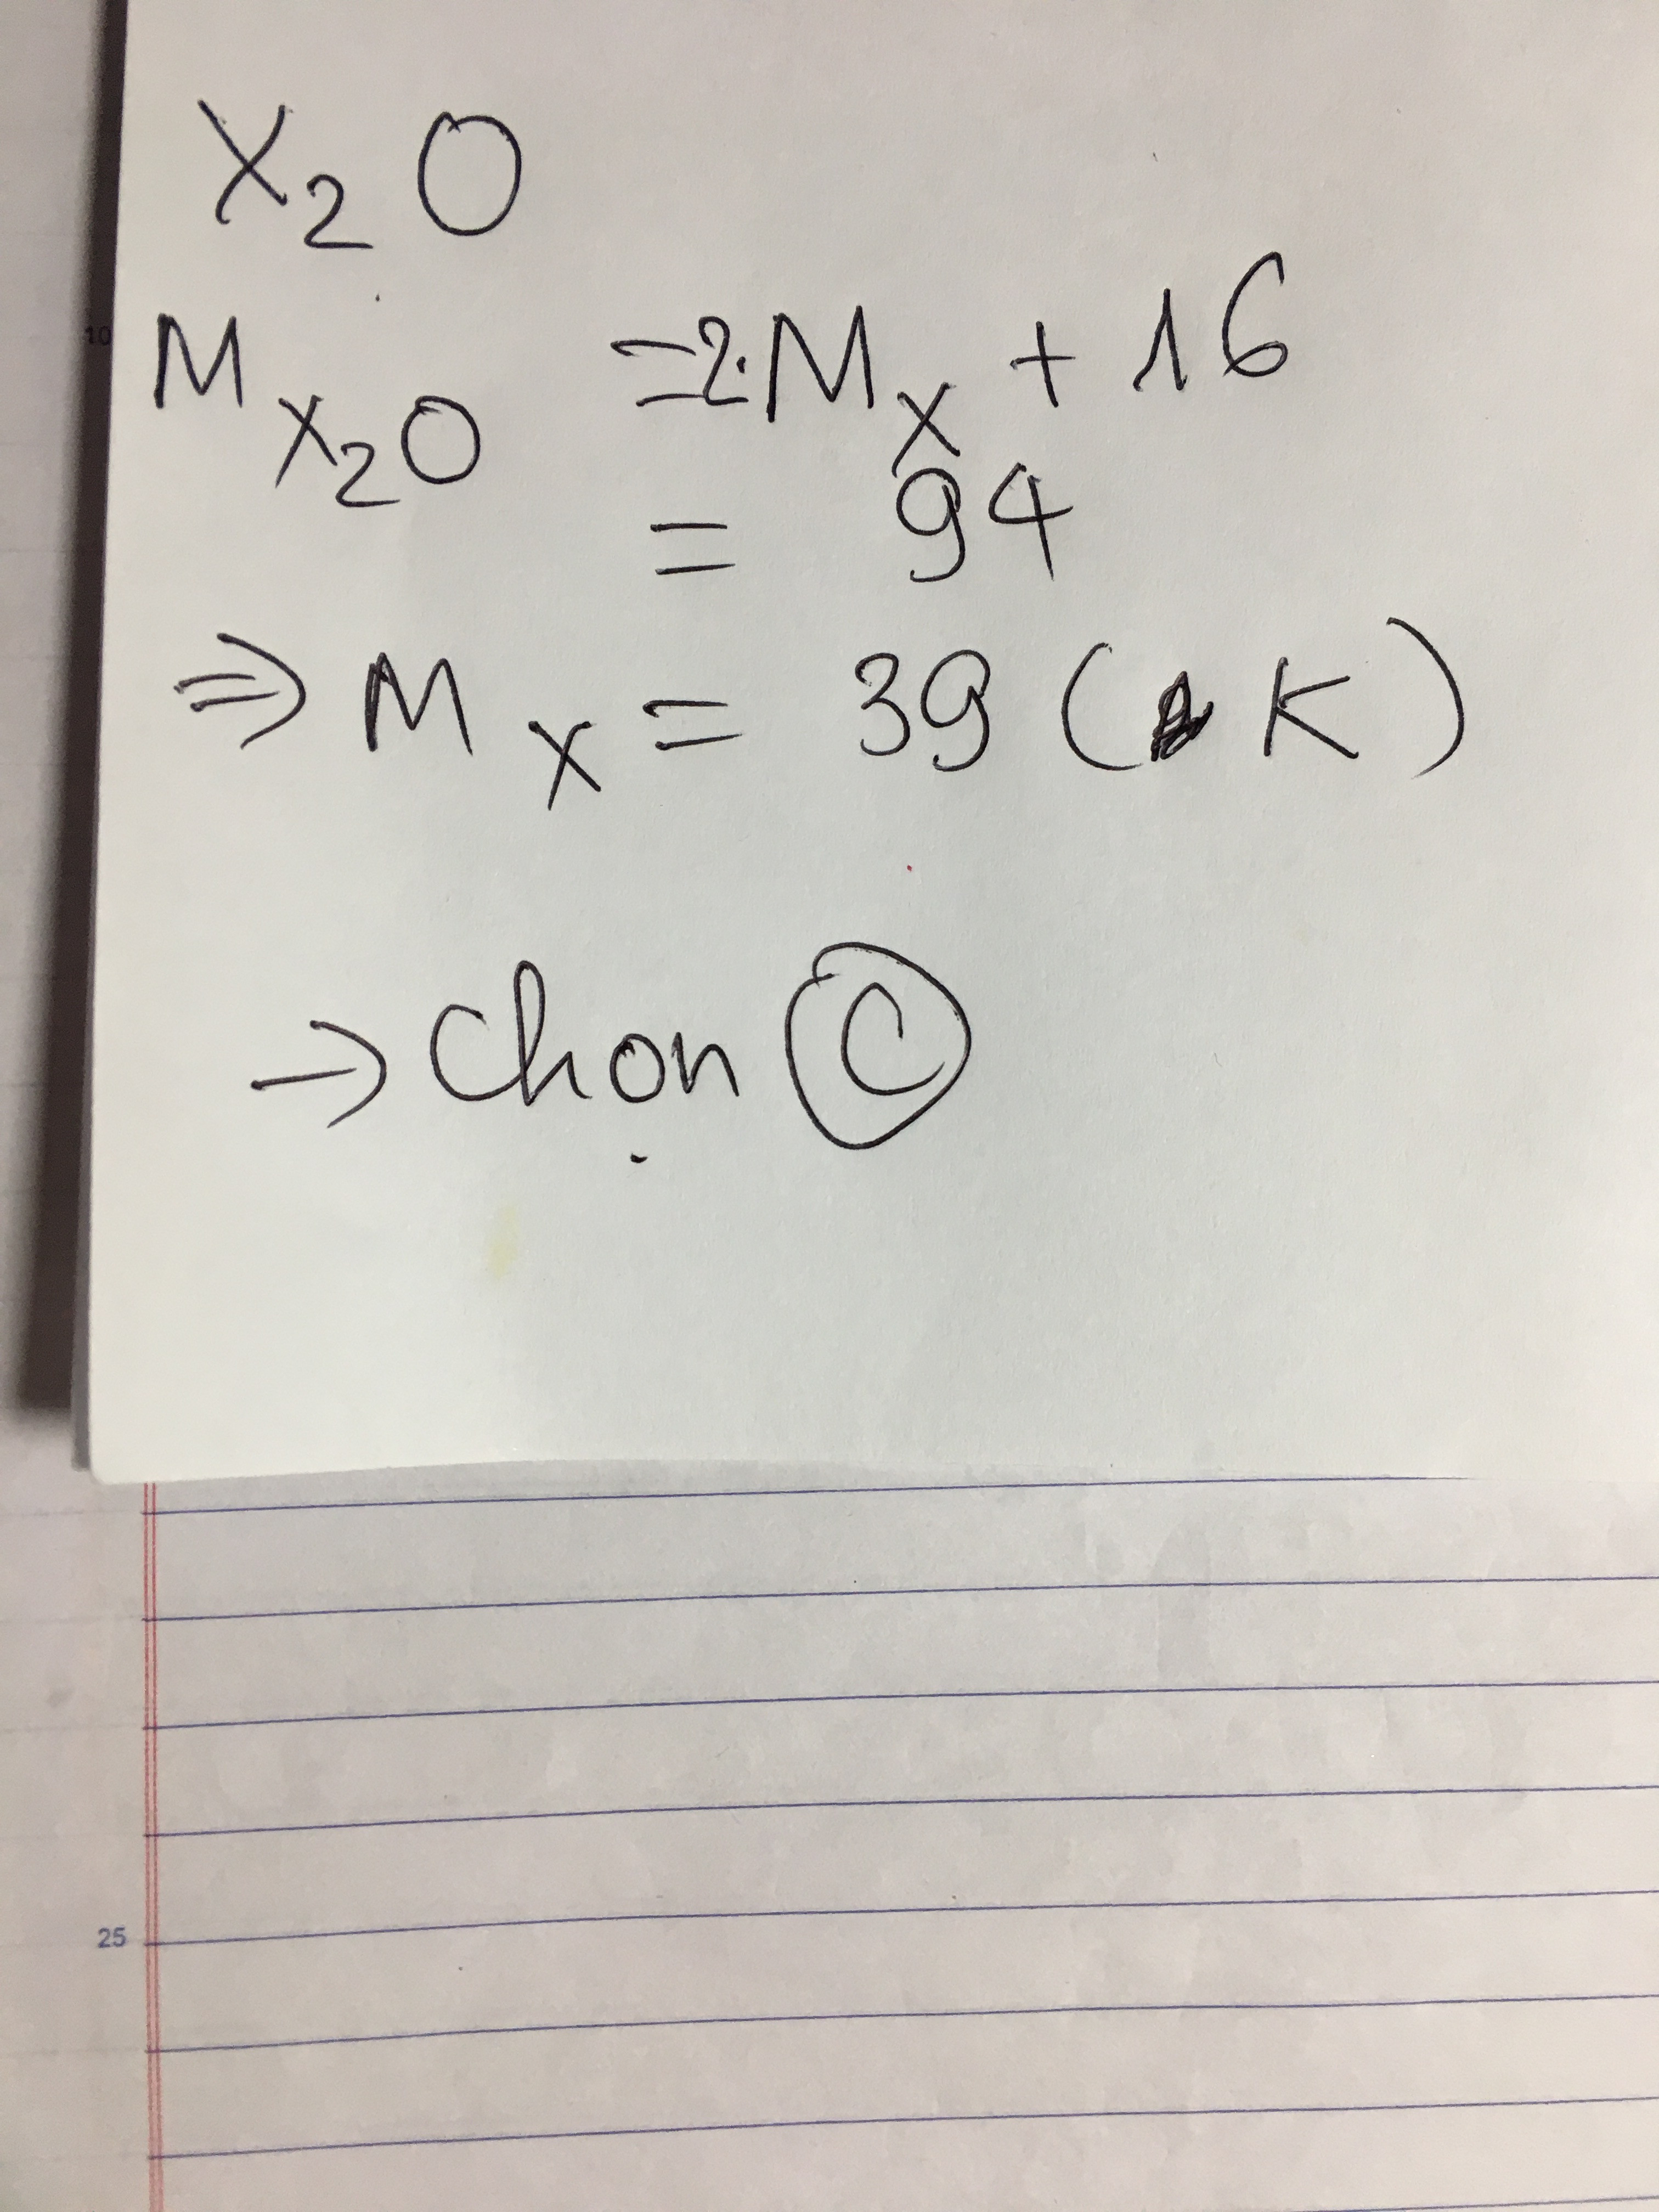 X₂O
10
M X₂O = 2. M X + 16
= 94
⇒ M X = 39 ( K )
→ Chọn C
25